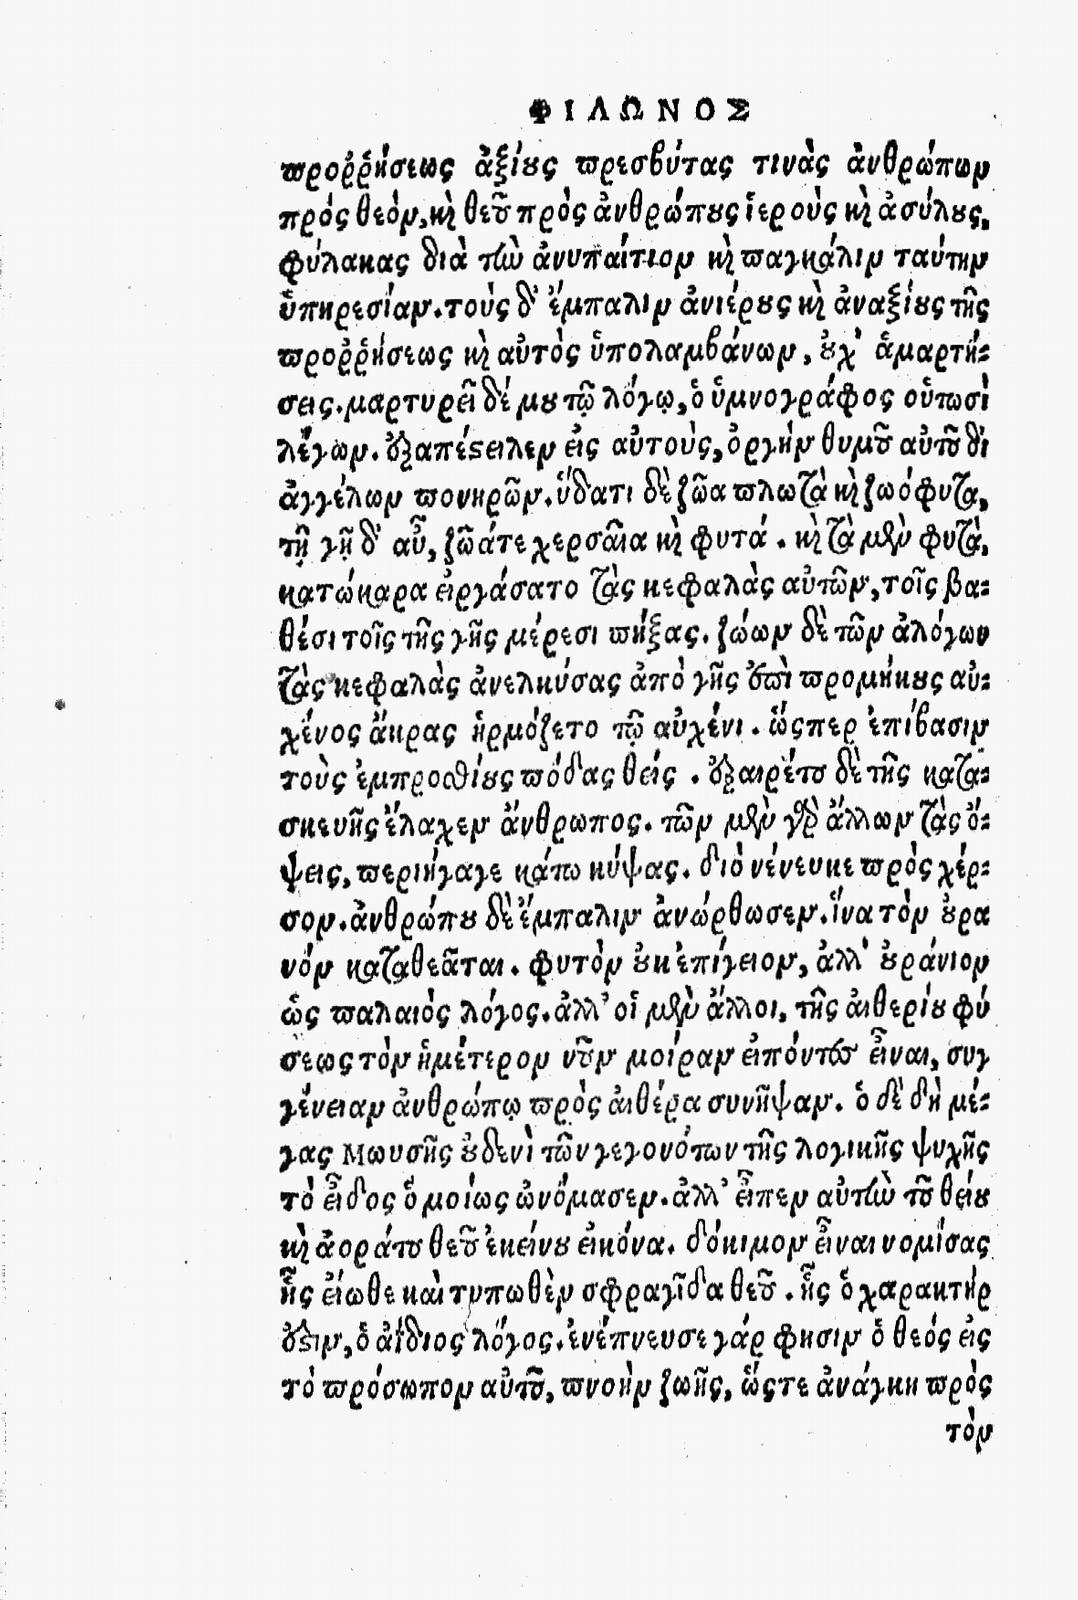 ΦΙΛΩΝΟΣ
προῤῥήσεως ἀξίους πρεσβύτας τινὰς ἀνθρώπων
πρός θεόν, καὶ θεοῦ πρὸς ἀνθρώπους ἱερούς καὶ ἀσύλους,
φύλακας διὰ τὴν ἀνυπαίτιον καὶ παγκάλιν ταύτην
ὑπηρεσίαν. τοὺς δ' ἔμπαλιν ἀνιέρους καὶ ἀναξίους τῆς
προῤῥήσεως καὶ αὐτὸς ὑπολαμβάνων, οὐχ' ἁμαρτή-
σεις. μαρτυρεῖ δέ μου τῷ λόγῳ, ὁ ὑμνογράφος οὑτωσὶ
λέγων. ἐξαπέστειλεν εἰς αὐτοὺς, ὀργήν θυμοῦ αὐτοῦ δι
ἀγγέλων πονηρῶν. ὕδατι δὲ ζῶα πλωτὰ καὶ ζωόφυτα,
τῇ γῇ δ' αὖ, ζῶά τε χερσαῖα καὶ φυτά. καὶ τὰ μὲν φυτὰ,
κατώκαρα εἰργάσατο τὰς κεφαλὰς αὐτῶν, τοῖς βα-
θέσι τοῖς τῆς γῆς μέρεσι πήξας. ζώων δὲ τῶν ἀλόγων
τὰς κεφαλὰς ἀνελκύσας ἀπὸ γῆς ἐπὶ προμήκους αὐ-
χένος ἄκρας ἡρμόζετο τῷ αὐχένι. ὥςπερ ἐπίβασιν
τοὺς ἐμπροσθίους πόδας θείς. ἐξαιρέτου δὲ τῆς κατα-
σκευῆς ἔλαχεν ἄνθρωπος. τῶν μὲν γὰρ ἄλλων τὰς ὄ-
ψεις, περιήγαγε κάτω κύψας. διὸ νένευκε πρὸς χέρ-
σον. ἀνθρώπου δὲ ἔμπαλιν ἀνώρθωσεν. ἵνα τὸν οὐρα
νόν καταθεᾶται. φυτὸν οὐκ ἐπίγειον, ἀλλ' οὐράνιον
ὡς παλαιός λόγος. ἀλλ' οἱ μὲν ἄλλοι, τῆς αἰθερίου φύ
σεως τὸν ἡμέτερον νοῦν μοίραν εἰπόντες εἶναι, συγ
γένειαν ἀνθρώπῳ πρὸς αἰθέρα συνῆψαν. ὁ δὲ δὴ μέ-
γας Μωυσῆς οὐδενὶ τῶν γεγονότων τῆς λογικῆς ψυχῆς
τὸ εἶδος ὁμοίως ὠνόμασεν. ἀλλ' εἶπεν αὐτὴν τοῦ θείου
καὶ ἀοράτου θεοῦ ἐκείνου εἰκόνα. δόκιμον εἶναι νομίσας
ἧς εἴωθε καὶ τυπωθὲν σφραγῖδα θεοῦ. ἧς ὁ χαρακτήρ
ἐστιν, ὁ ἀΐδιος λόγος. ἐνέπνευσε γάρ φησιν ὁ θεός εἰς
τὸ πρόσωπον αὐτοῦ, πνοὴν ζωῆς, ὥςτε ἀνάγκη πρὸς
τὸν